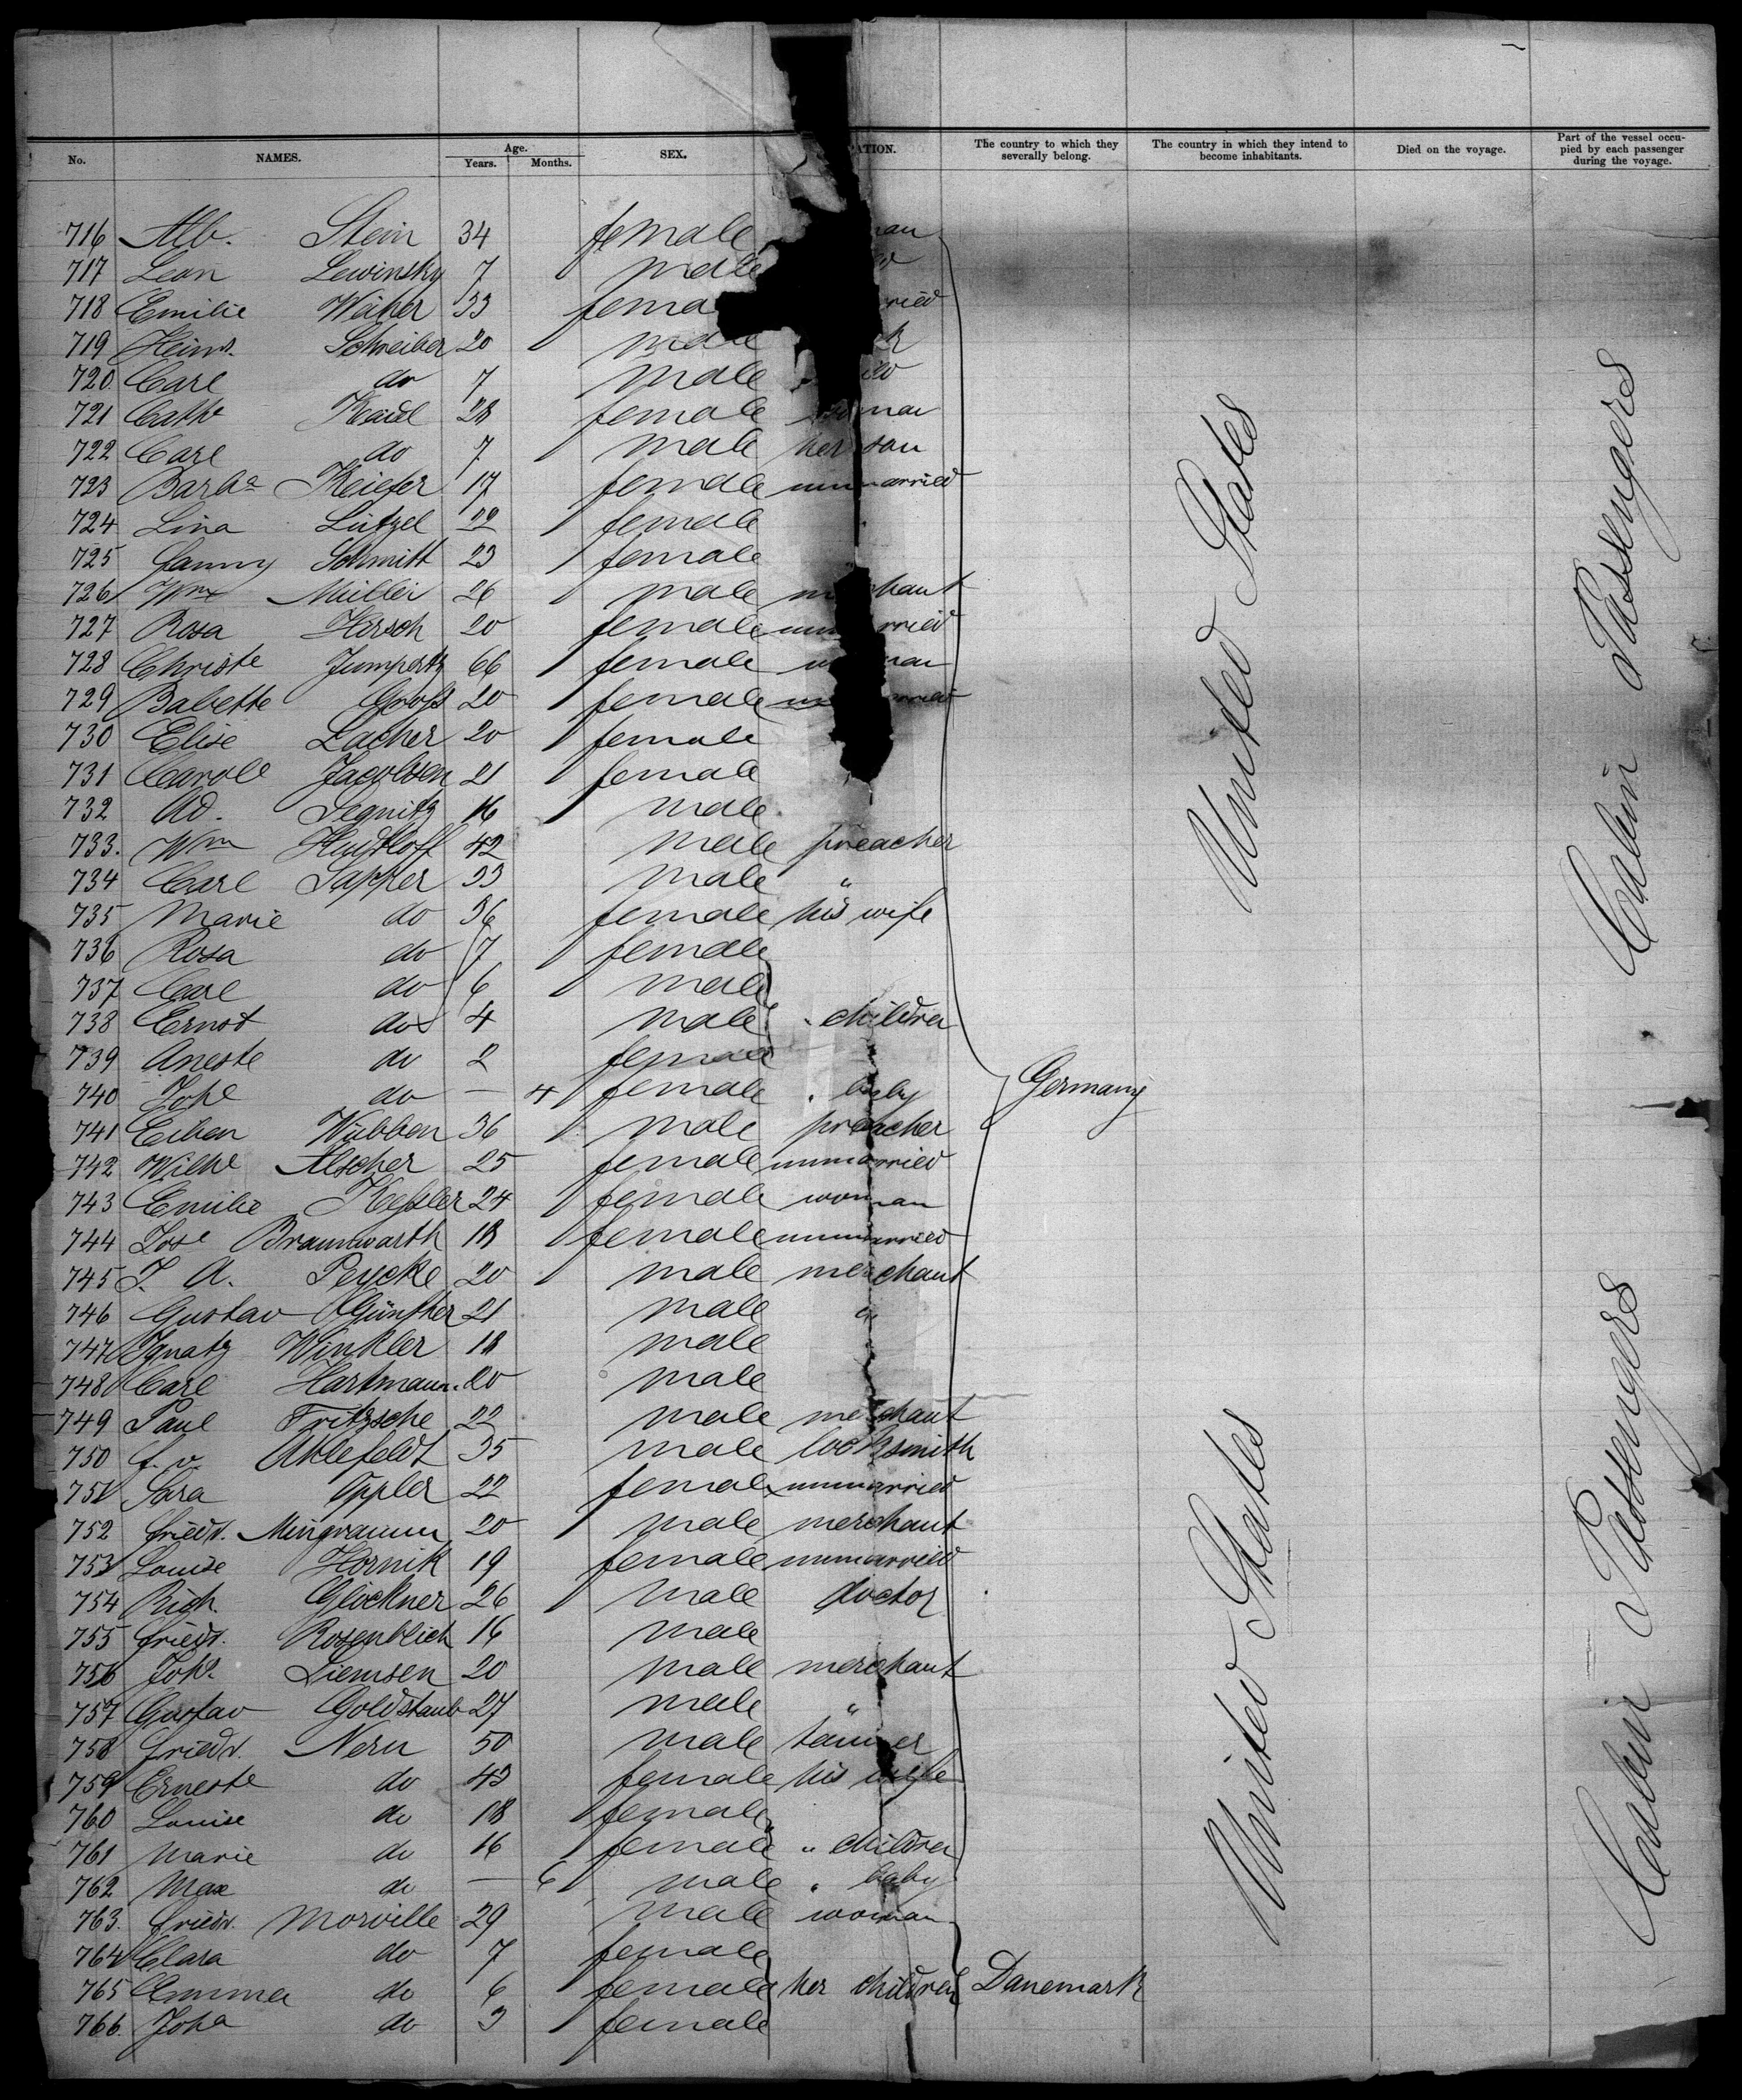 No. NAMES. Age. Years. Months. SEX. ATION. The country to which they severally belong. The country in which they intend to become inhabitants. Died on the voyage. Part of the vessel occupied by each passenger during the voyage.
716 Alb. Stein 34 female
717 Leon Lewinsky 7 male
718 Emilie 33 ried
719 Schreiber 20 male
720 Carl do 7 male
721 Cathe 28 female
722 Carl do 7 male her son
723 Barba Kiefer 17 female unmarried
724 Lina Lützel 22 female
725 Fanny Schmitt 23 female
726 Wm Müller 26 male merchant
727 Rosa Hirsch 20 female unmarried
728 Christe Jumpertz 66 female woman
729 Babette Groß 20 female unmarried
730 Elise Lacher 20 female
731 Carole Jacobsen 21 female
732 Ad. Segnitz 16 male
733. Wm male preacher 42
734 Carl Sapper 33 male "
735 Marie do 36 female his wife
736 Rosa do 7 female
737 Carl do 6 male
738 Ernst do 4 male " children
739 do 2 female
740 Johe do — 4 female " baby Germany
741 Wübben 36 male preacher
742 Wilhe Alscher 25 female unmarried
743 Emilie Keßler 24 female woman
744 Jose Braunwarth 18 female unmarried
745 J. A. Peycke 20 male merchant
746 Gustav Günther 21 male "
747 Ignatz Winkler 18 male
748 Carl Hartmann 20 male
749 Paul Fritzsche 22 male merchant
750 F. v. Ahlefeldt 35 male locksmith
751 Sara Oppler 22 female unmarried
752 Friedr. Mingramm 20 male merchant
753 Louise Hornik 19 female unmarried
754 Rich. Glöckner 26 male doctor
755 Friedr. Rosenblich 16 male
756 Johs. Siemsen 20 male merchant
757 Gustav Goldstaub 27 male "
758 Friedr. Nern 50 male tanner
759 Erneste do 43 female his wife
760 Louise do 18 female
761 Marie do 16 female " children
762 Max do — 6 male " baby
763. Friedr. Morville 29 male woman
764 Clara do 7 female
765 Emma do 6 female her children Danemark
766. Joha do 3 female
United States
United States
Cabin Passengers
Cabin Passengers